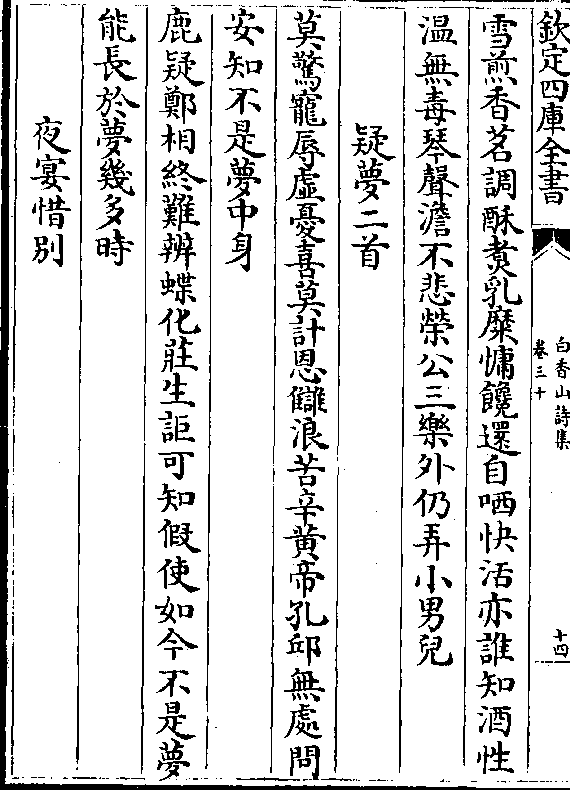 欽定四庫全書
白香山詩集
卷三十
十四
雪煎香茗調酥煑乳糜慵饞還自哂快活亦誰知酒性
温無毒琴聲澹不悲榮公三樂外仍弄小男兒
疑夢二首
莫驚寵辱虛憂喜莫計恩讎浪苦辛黄帝孔邱無處問
安知不是夢中身
鹿疑鄭相終難辨蝶化莊生詎可知假使如今不是夢
能長於夢幾多時
夜宴惜别